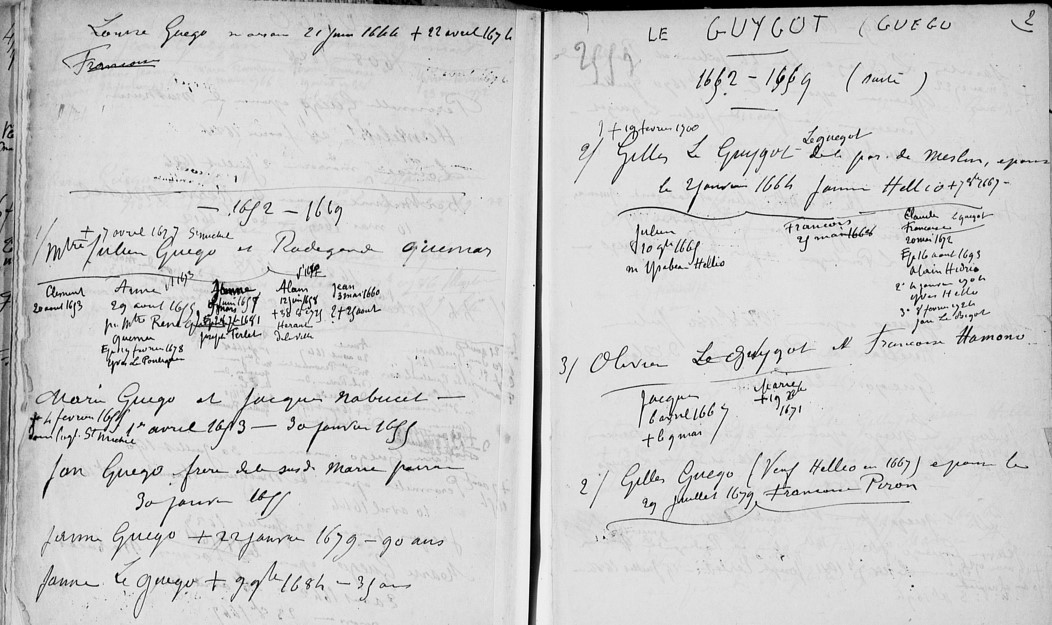 Louise Guego marraine 21 juin 1666 + 22 avril 1676
Francoise
1652 - 1669
+ 7 avril 1677 St michel
1/ Mtre Julien Guego et Radegand quemar
Clement
20 aout 1653
Anne
29 avril 1655
par Mtre Rene
quemar
Ep 19 fevrier 1678
Yves Le Pontois
Janne
juin 1657
1681
joseph Terlet
Alain
12 juin 1658
+ 30
Herault
Jean
3 mai 1660
+ 25 aout
Marie Guego et Jacques Nabucet
+ 4 fevrier
dans l'egl. St Michel
1er avril 1653 - 30 janvier 1655
Jan Guego frere de la susd. Marie parrain
30 janvier 1655
Janne Guego + 22 janvier 1679 - 90 ans
Janne Le Guego + 9 9bre 1684 - 35 ans
LE GUYGOT (GUEGO
2
1652 - 1669 (suite)
+ 19 fevrier 1700
Le guegot
2/ Gilles Le Guygot de la par. de Meslin, epouse
le 2 janvier 1664 Janne Hellio + 7 1667
Julien
10 9bre 1665
m Ysabeau Hellio
Francois
25 mai 1666
Claude Lguygot
Francoise
20 mai 1672
Ep 16 aout 1693
Alain Hidrio
2° 6 janvier 1704
Yves Hello
3° 8 fevrier 1724
Jan Le Bigot
3/ Olivier Le Guygot et Francoise Hamono
Jacques
6 avril 1667
+ 6 9 mai
Marie
+ 19 Xbre
1671
2°/ Gilles Guego (Veuf Hellio en 1667) epouse le
29 juillet 1679 Francoise Piron